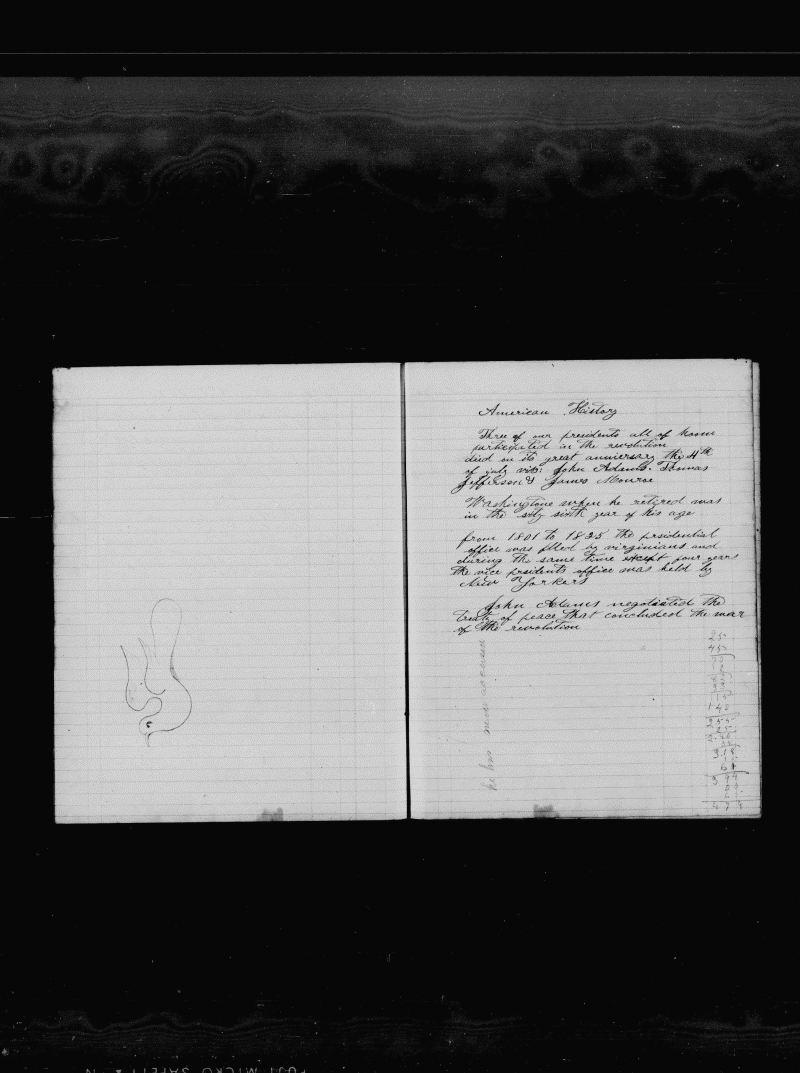 American History
Three of our presidents all of hoom
participated in the revolution
died on its great anniversary the 4th
of july viz: John Adams. Thomas
Jefferson & James Monroe
Washingtone when he retired was
in the sixty sixth year of his age
from 1801 to 1825 the presidential
office was filled by virginians and
during the same time except four years
the vice prsidents office was held by
New Yorkers
John Adams negotiated the
treaty of peace that concluded the war
of the revolution
he has new
25
45
140
255